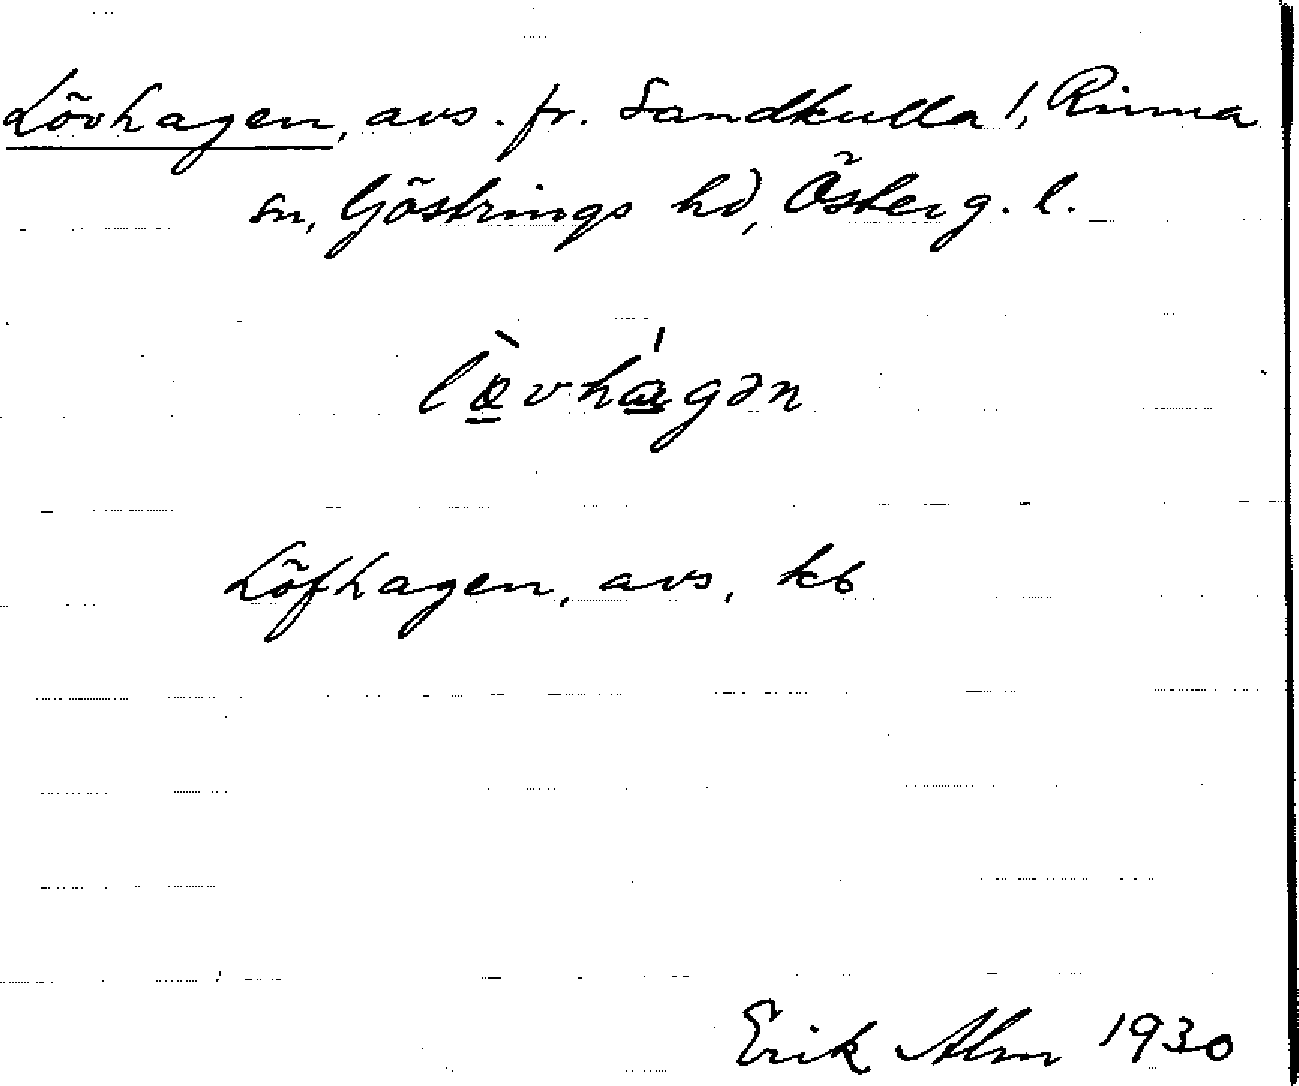 Lövhagen, avs. fr. Sandkulla 1, Rinna
sn, Göstrings hd, Österg. l.
lœ̠̀vhá̠gən
Löfhagen, avs, kb
Erik Alm 1930